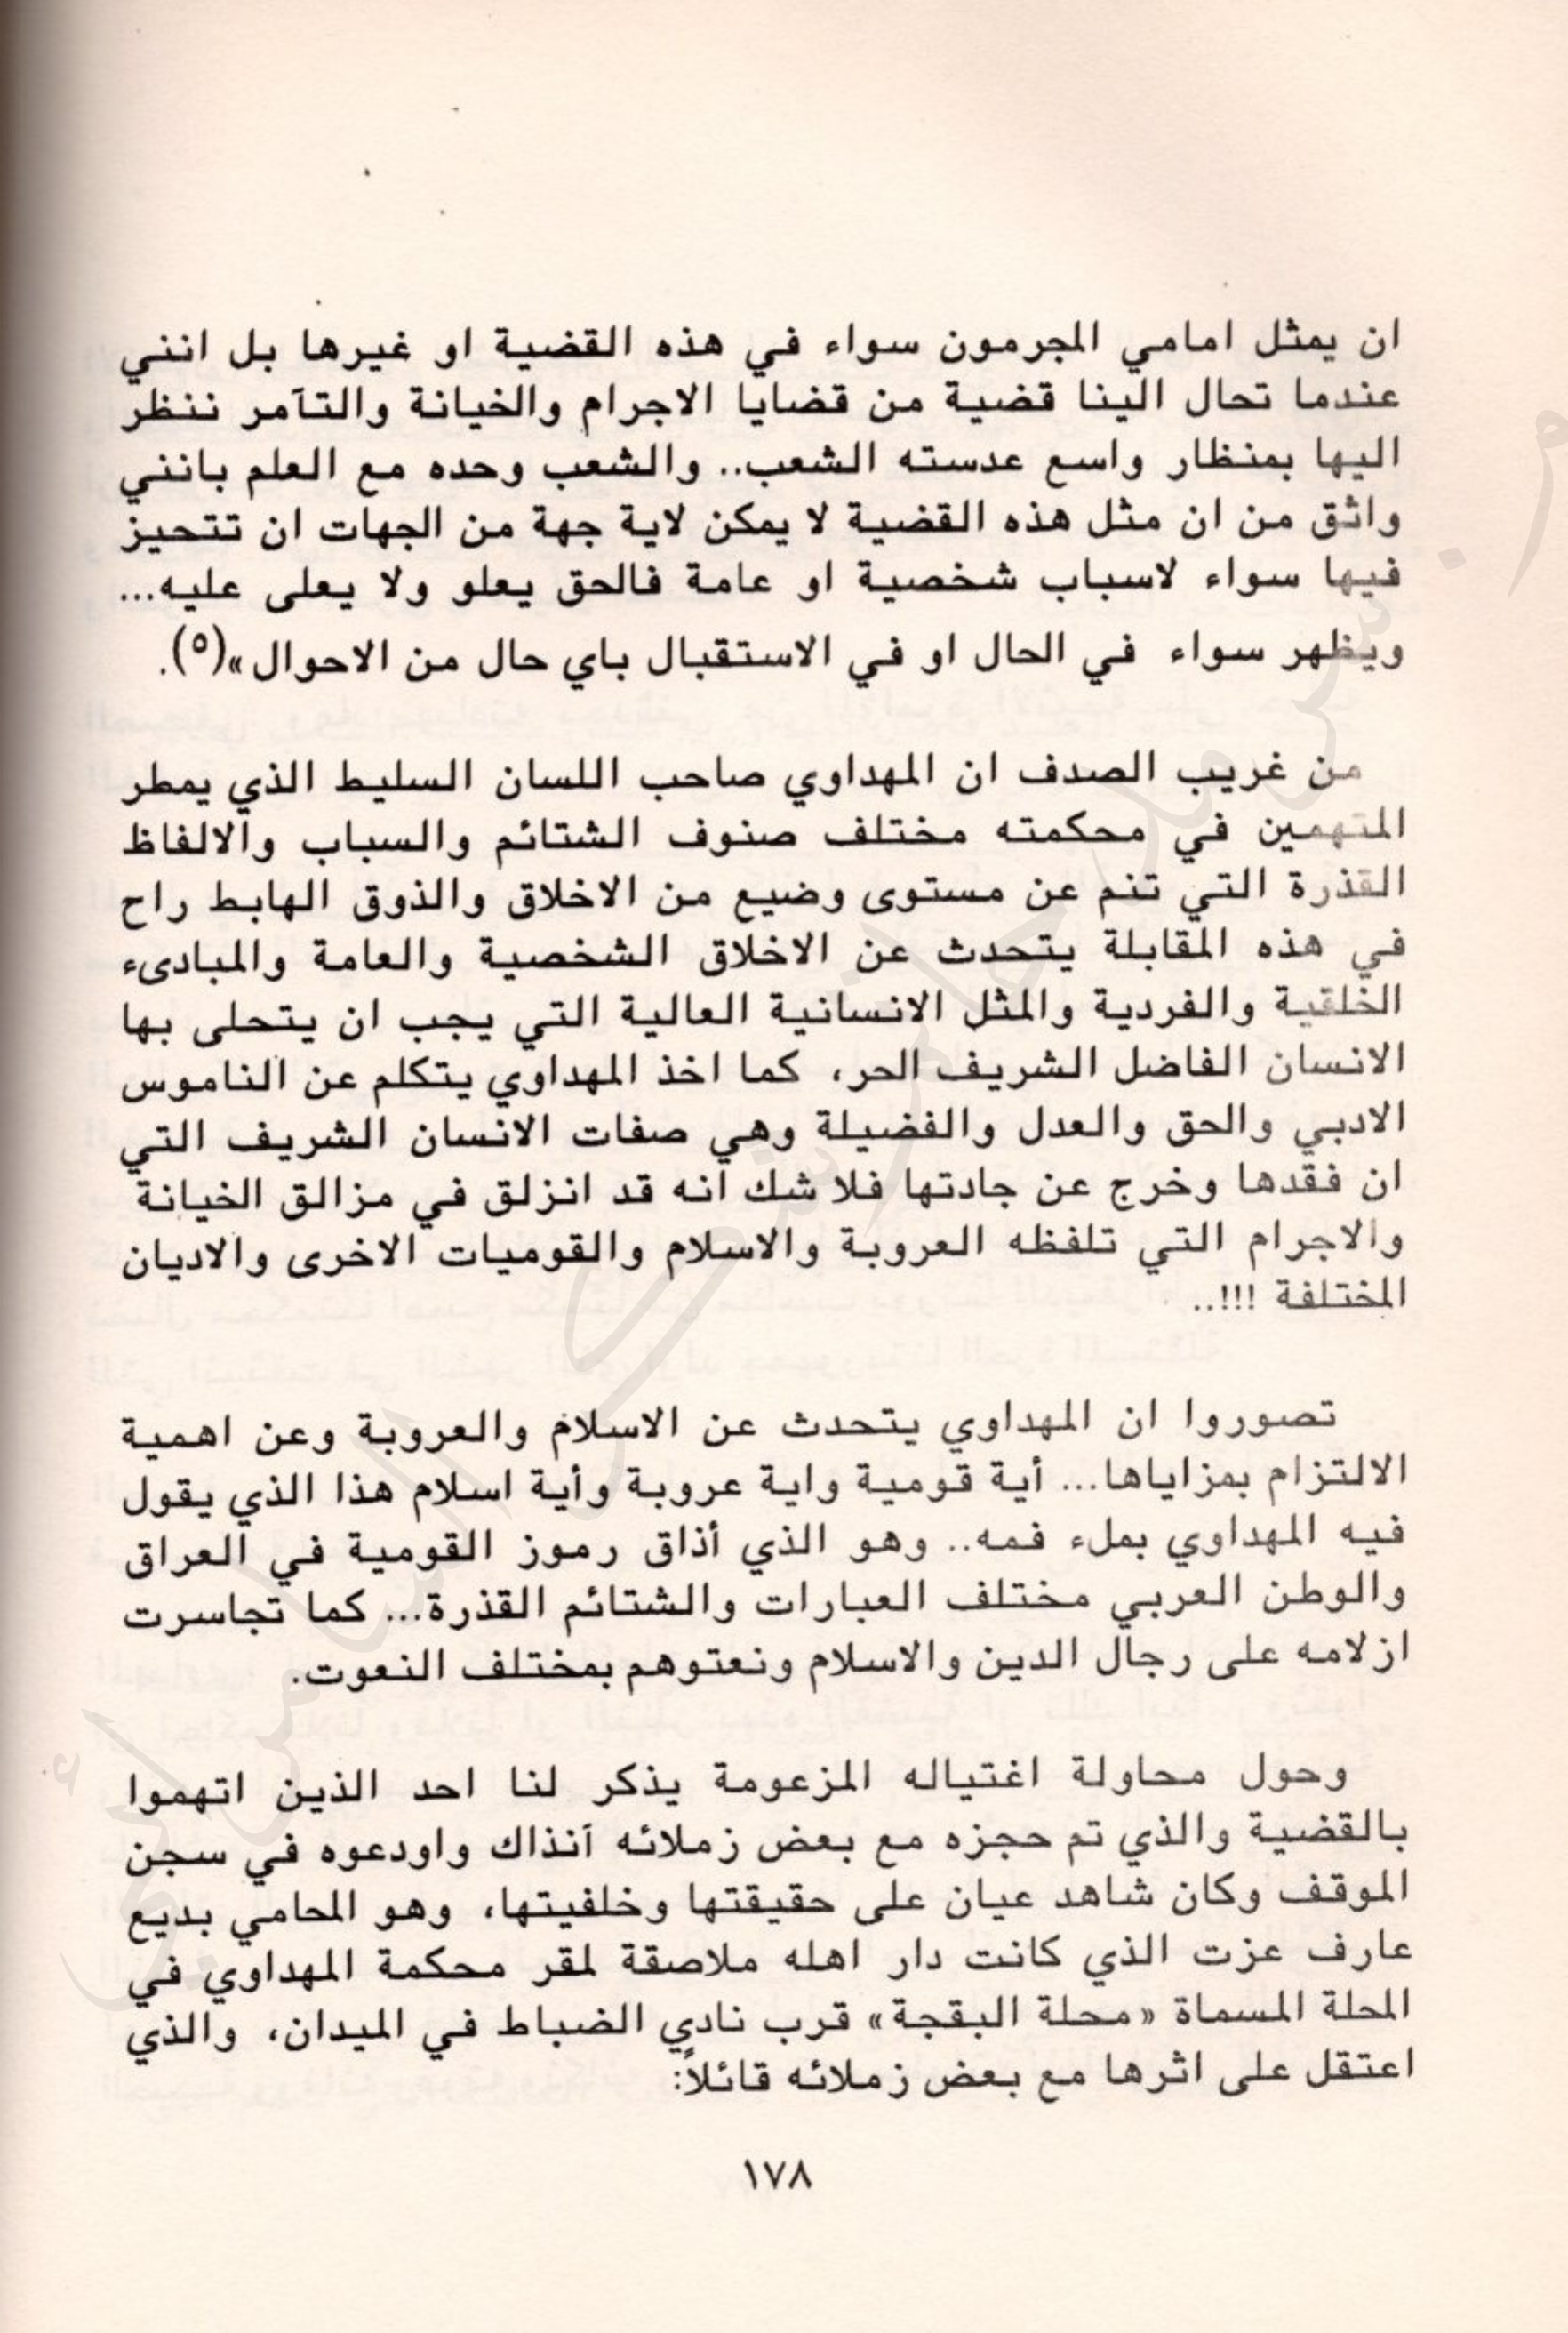 ان يمثل امامي المجرمون سواء في هذه القضية او غيرها بل انني
عندما تحال الينا قضية من قضايا الاجرام والخيانة والتآمر ننظر
اليها بمنظار واسع عدسته الشعب.. والشعب وحده مع العلم بانني
واثق من ان مثل هذه القضية لا يمكن لاية جهة من الجهات ان تتحيز
فيها سواء لاسباب شخصية او عامة فالحق يعلو ولا يعلى عليه...
ويظهر سواء في الحال او في الاستقبال باي حال من الاحوال»(٥).
من غريب الصدف ان المهداوي صاحب اللسان السليط الذي يمطر
المتهمين في محكمته مختلف صنوف الشتائم والسباب والالفاظ
القذرة التي تنم عن مستوى وضيع من الاخلاق والذوق الهابط راح
في هذه المقابلة يتحدث عن الاخلاق الشخصية والعامة والمبادىء
الخلقية والفردية والمثل الانسانية العالية التي يجب ان يتحلى بها
الانسان الفاضل الشريف الحر، كما اخذ المهداوي يتكلم عن الناموس
الادبي والحق والعدل والفضيلة وهي صفات الانسان الشريف التي
ان فقدها وخرج عن جادتها فلا شك انه قد انزلق في مزالق الخيانة
والاجرام التي تلفظه العروبة والاسلام والقوميات الاخرى والاديان
المختلفة !!!..
تصوروا ان المهداوي يتحدث عن الاسلام والعروبة وعن اهمية
الالتزام بمزاياها... أية قومية واية عروبة وأية اسلام هذا الذي يقول
فيه المهداوي بملء فمه.. وهو الذي أذاق رموز القومية في العراق
والوطن العربي مختلف العبارات والشتائم القذرة... كما تجاسرت
ازلامه على رجال الدين والاسلام ونعتوهم بمختلف النعوت.
وحول محاولة اغتياله المزعومة يذكر لنا احد الذين اتهموا
بالقضية والذي تم حجزه مع بعض زملائه آنذاك واودعوه في سجن
الموقف وكان شاهد عيان على حقيقتها وخلفيتها، وهو المحامي بديع
عارف عزت الذي كانت دار اهله ملاصقة لمقر محكمة المهداوي في
المحلة المسماة «محلة البقجة» قرب نادي الضباط في الميدان، والذي
اعتقل على اثرها مع بعض زملائه قائلاً:
١٧٨